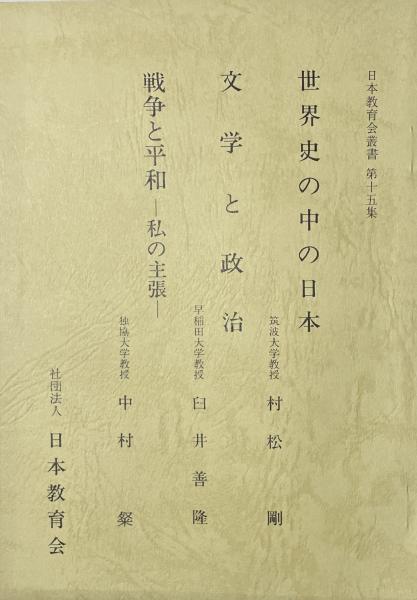 日本教育会叢書 第十五集
世界史の中の日本
筑波大学教授 村松 剛
文学と政治
早稲田大学教授 臼井善隆
戦争と平和―私の主張―
独協大学教授 中村 粲
社団法人 日本教育会